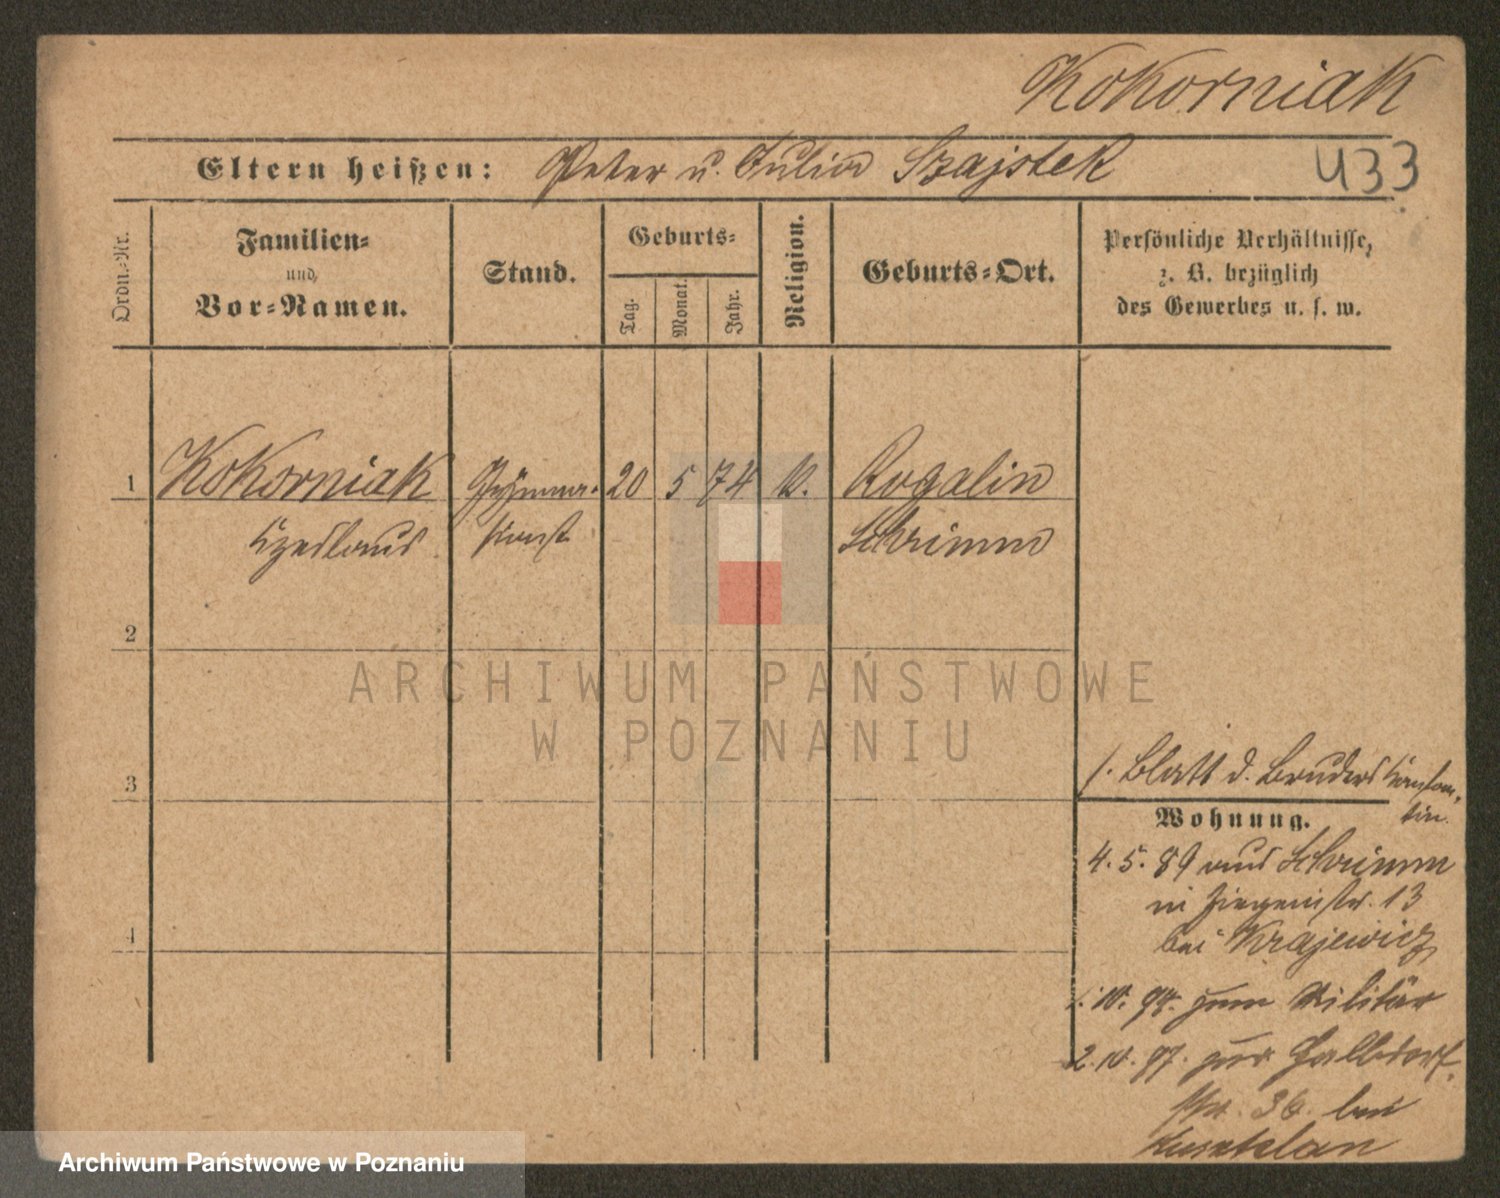 Kokorniak
Eltern heißen: Peter u. Julia Szajstek
433
Ordn.-Nr.
Familien-
und
Vor-Namen.
Stand.
Geburts-
Tag.
Monat.
Jahr.
Religion.
Geburts-Ort.
Persönliche Verhältnisse,
z. B. bezüglich
des Gewerbes u. s. w.
1 Kokorniak Gymna- 20 5 74 Rogalin
Czeslaus siast Schrimm
2
3
4
s. Blatt d. Bruders Konstan-
tin.
Wohnung.
4. 5. 89 aus Schrimm
in Ziegenstr. 13
bei Krajewicz
1. 10. 94. zum Militär
2. 10. 97. zur Halbdorf-
str. 36 bei
ARCHIWUM PAŃSTWOWE
W POZNANIU
Archiwum Państwowe w Poznaniu